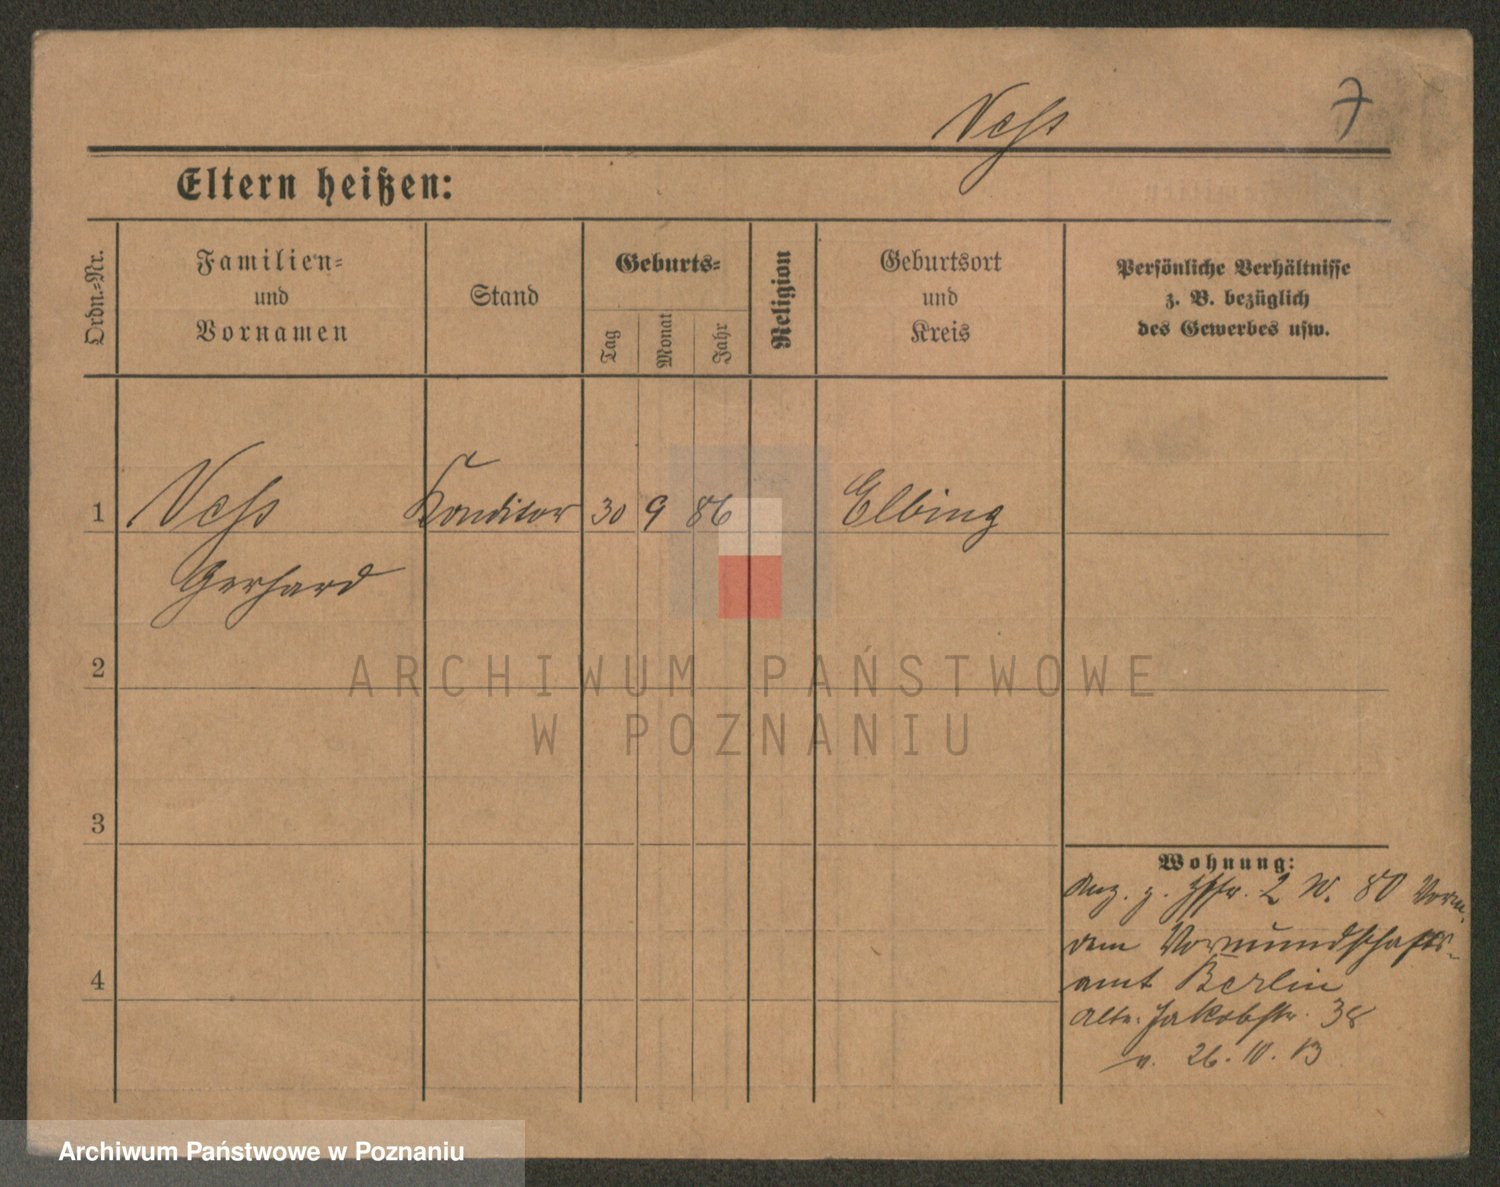 Vess 7
Eltern heißen:
Ordn.-Nr.
Familien-
und
Vornamen
Stand
Geburts-
Tag
Monat
Jahr
Religion
Geburtsort
und
Kreis
Persönliche Verhältnisse
z. B. bezüglich
des Gewerbes usw.
1 Vess Konditor 30 9 86 Elbing
Gerhard
2
3
4
Wohnung:
Anz. z. 2 W. 80
dem Vormundschafts-
amt Berlin
Alte Jakobstr. 38
v. 26. 10. 13
ARCHIWUM PAŃSTWOWE
W POZNANIU
Archiwum Państwowe w Poznaniu